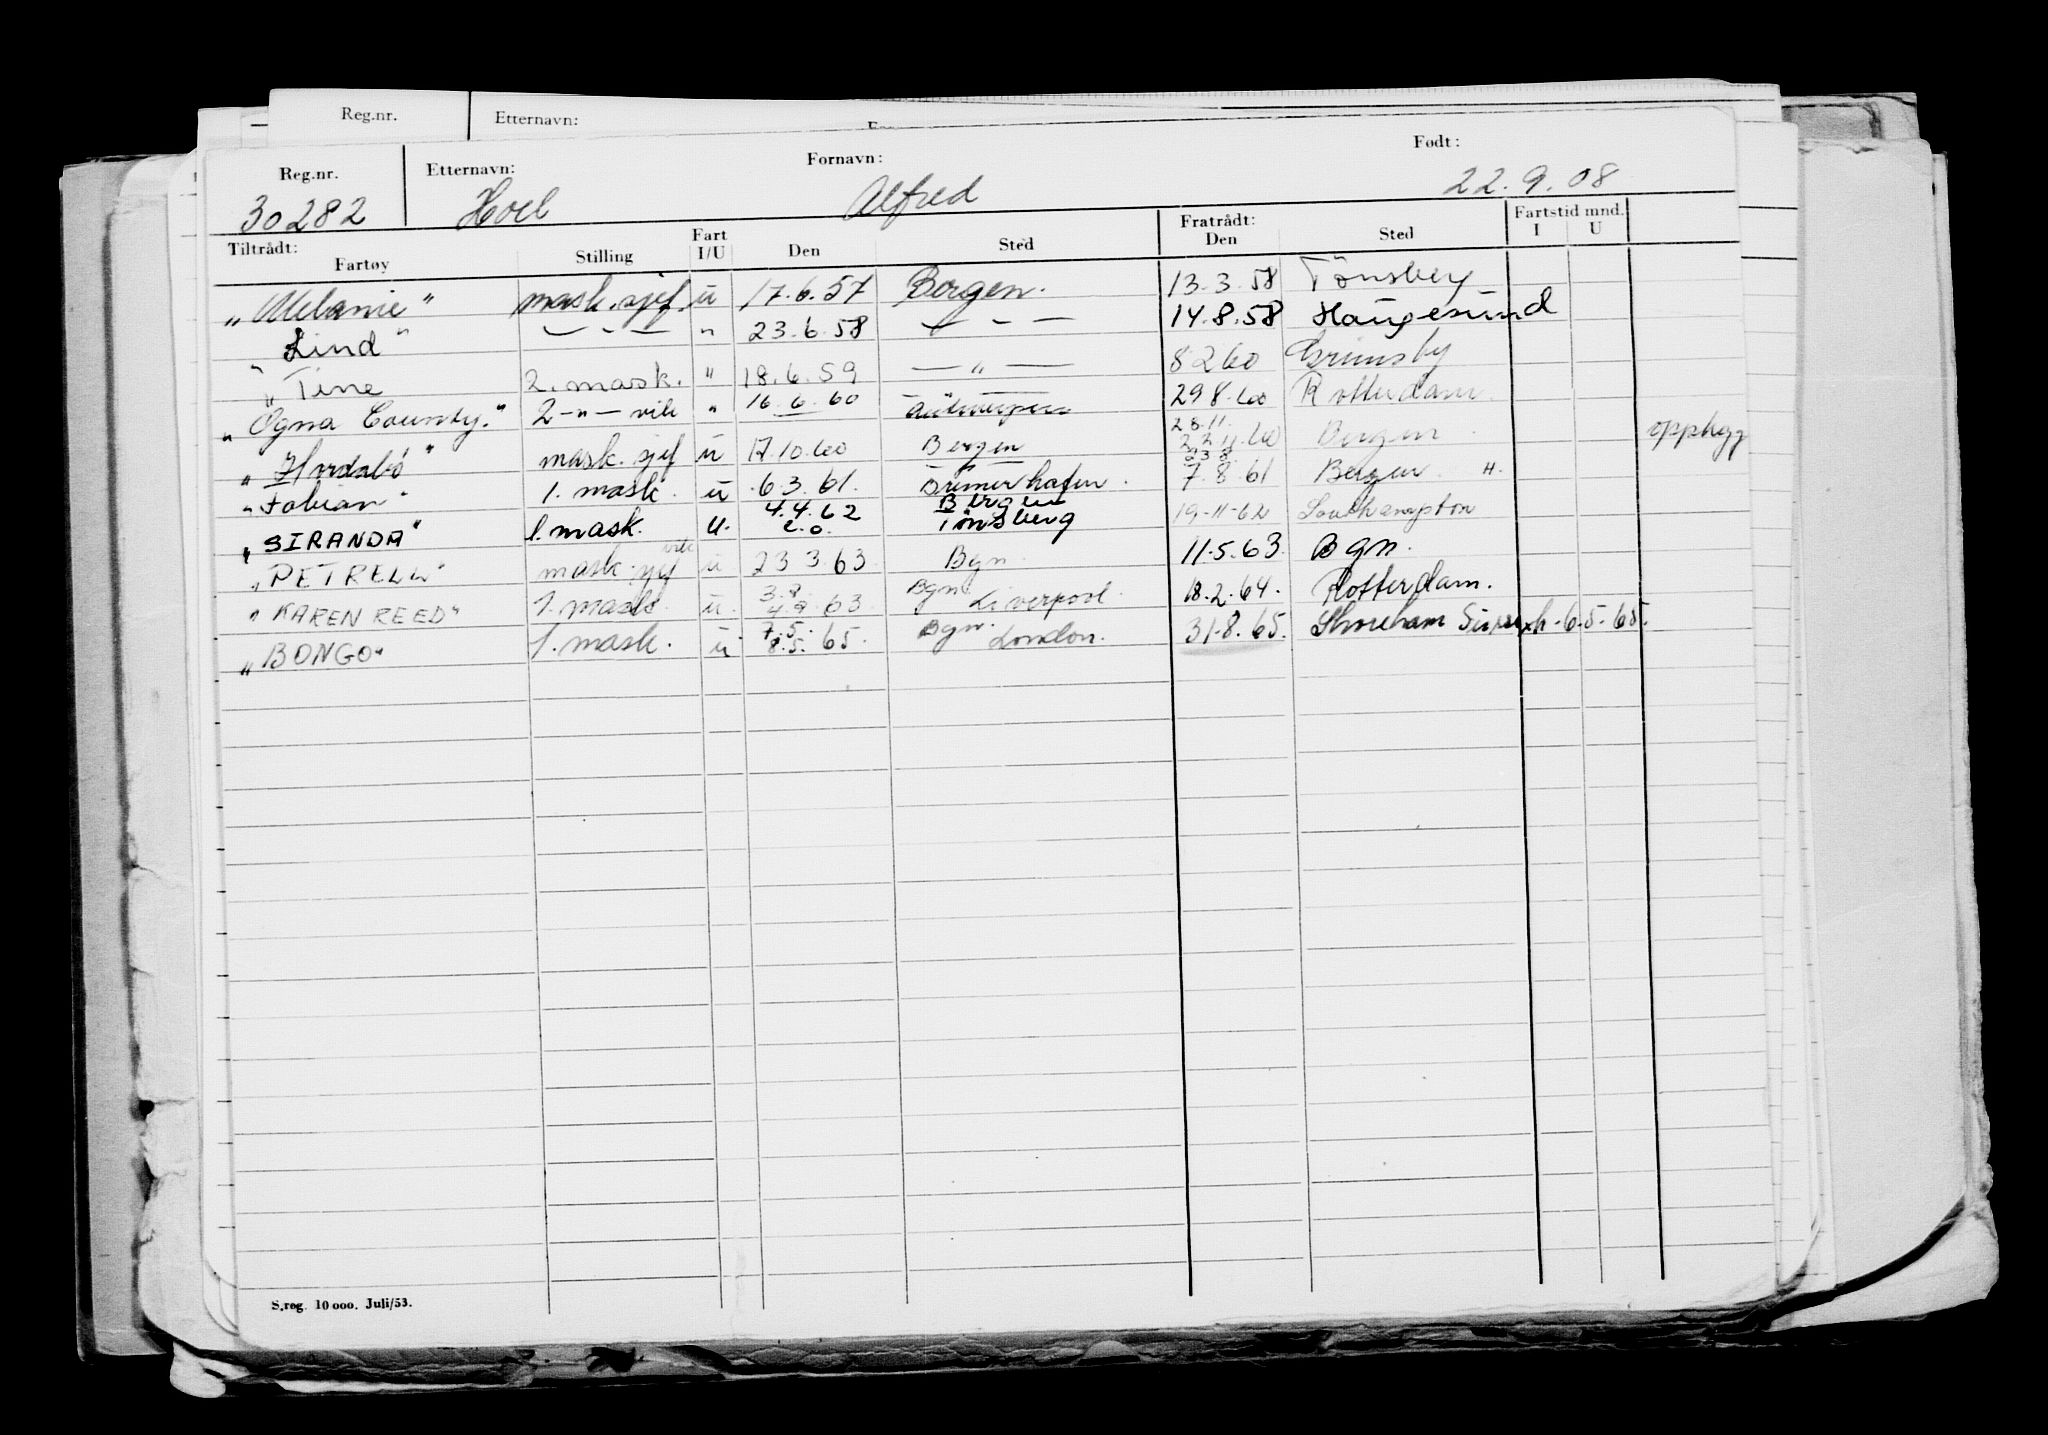 Reg.nr. Etternavn:
Reg.nr. Etternavn: Fornavn: Født:
30282 Hoel Alfred 22.9.08
Tiltrådt: Fartøy Stilling Fart I/U Den Sted Fratrådt: Den Sted Fartstid mnd. I U
"Melanie" mask.sjef. u 17.6.57 Bergen. 13.3.58 Tønsberg
"Lind" — " — " 23.6.58 — " — 14.8.58 Haugesund
"Tine 2. mask. " 18.6.59 — " — 8 2 60 Grimsby
"Ogna County." 2 —"— vik " 16.6.60 Antwerpen 29 8.60 Rotterdam.
"Hordabø" mask. sjef u 17.10.60 Bergen 22 11.60 Bergen. opphugg
"Fabian" 1. mask. u 6 3.61. Bremerhafen. 7.8.61 Bergen. H.
"SIRANDA" 1. mask. u. 4.4.62 Bergen Tønsberg 19-11-62 Southampton
"PETRELL" mask. sjef vik u 23 3.63 Bgn. 11.5.63. Bgn.
"KAREN REED" 1. mask. u. 3.8. 4.8.63. Bgn. Liverpool. 18.2.64. Rotterdam.
"BONGO" 1. mask. u 7.5. 8.5.65. Bgn. London. 31.8.65. Shoreham -6.5.65.
S.reg. 10 000. Juli/53.